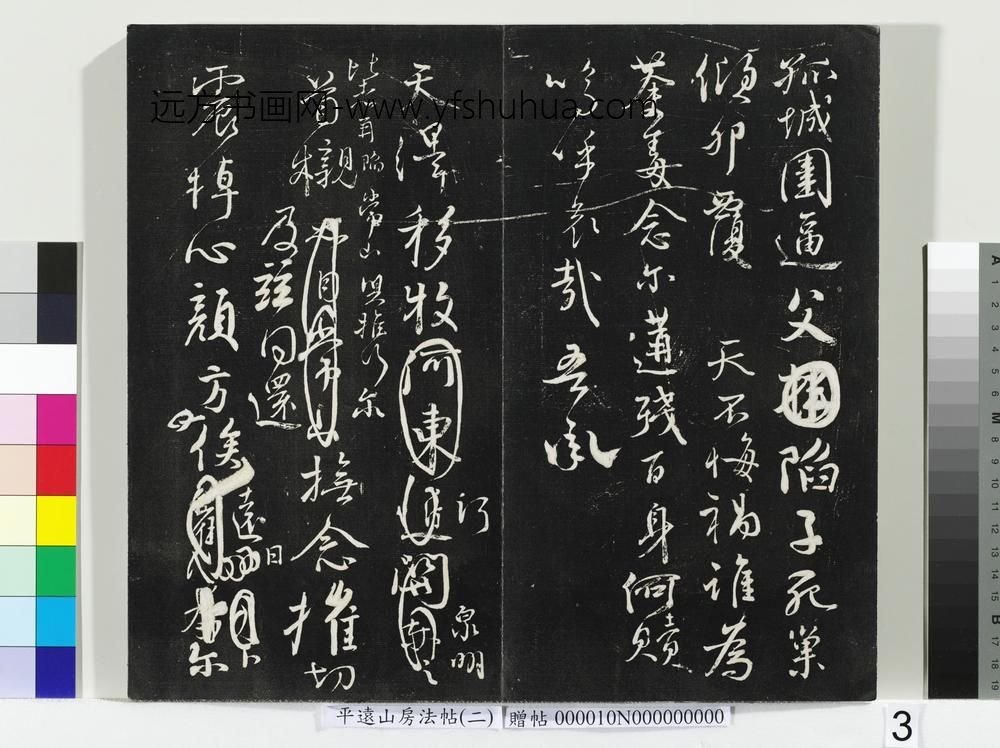 孤城圍逼父陷子死巢
傾卵覆 天不悔禍誰為
荼毒念爾遘殘百身何贖
嗚呼哀哉吾承
天澤移牧河東
河關
泉明
比者再陷常山攜爾
首櫬
及茲同還
撫念摧切
震悼心顏方俟
遠日
卜
爾
远方书画网-www.yfshuhua.com
平遠山房法帖(二)
贈帖 000010N000000000
3